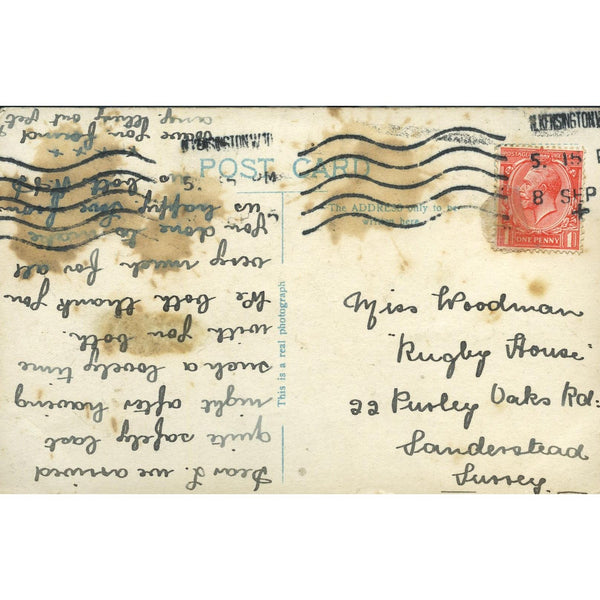 Dear L. we arrived
quite safely last
night after having
such a lovely time
with you both.
We both thank you
very much for all
you done to make
us happy. love from
to both
+ + +
you found
any
POST CARD
The ADDRESS only to be
written here
This is a real photograph
W. KENSINGTON W.14
5. 15
8 SEP
POSTAGE
ONE PENNY
Miss Woodman
"Rugby House"
22 Purley Oaks Rd:
Sanderstead
Surrey.